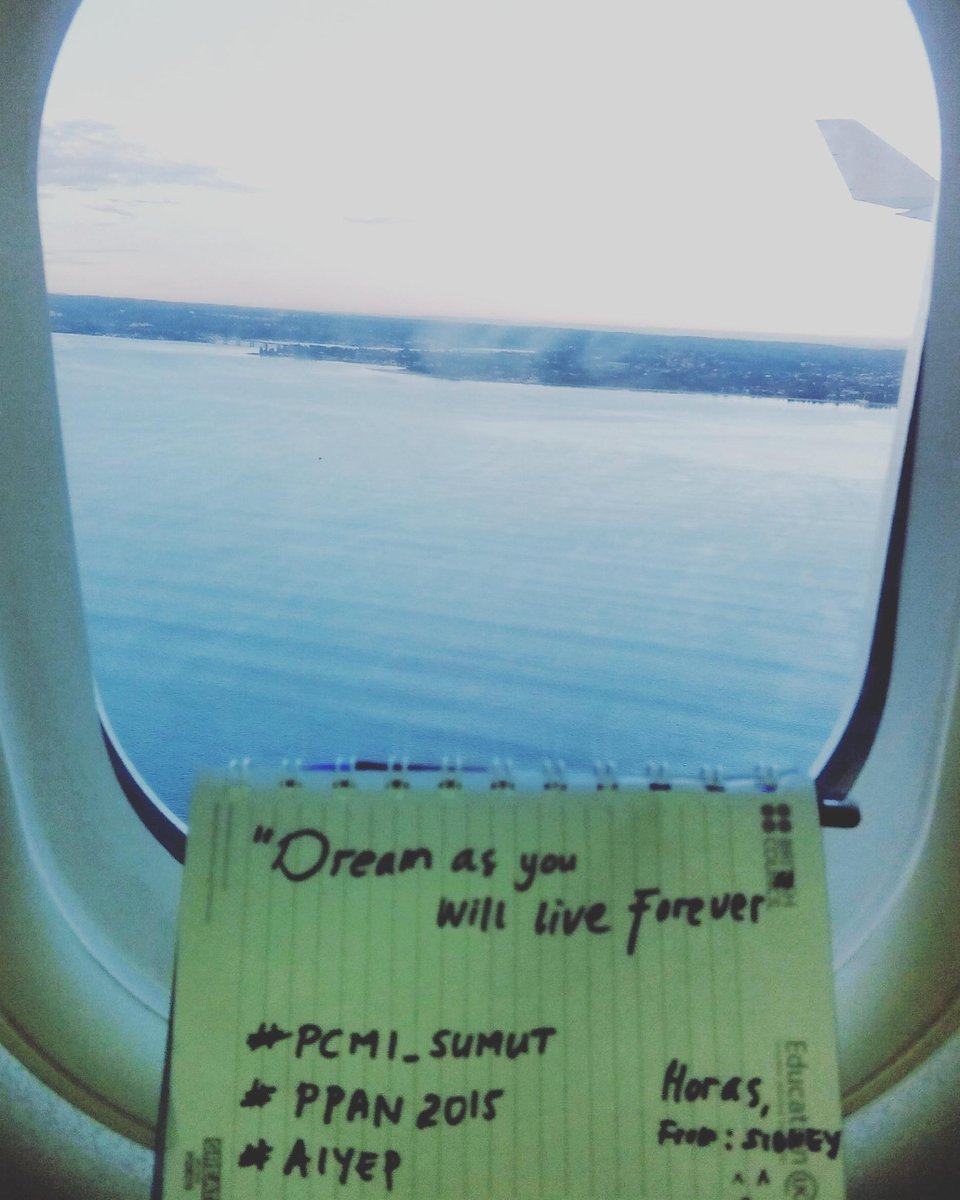 "Dream as you
will live Forever
#PCMI_SUMUT
# PPAN 2015
# AIYEP
Horas,
From: SIDNEY
^ ^
BRITISH
COUNCIL
Education UK